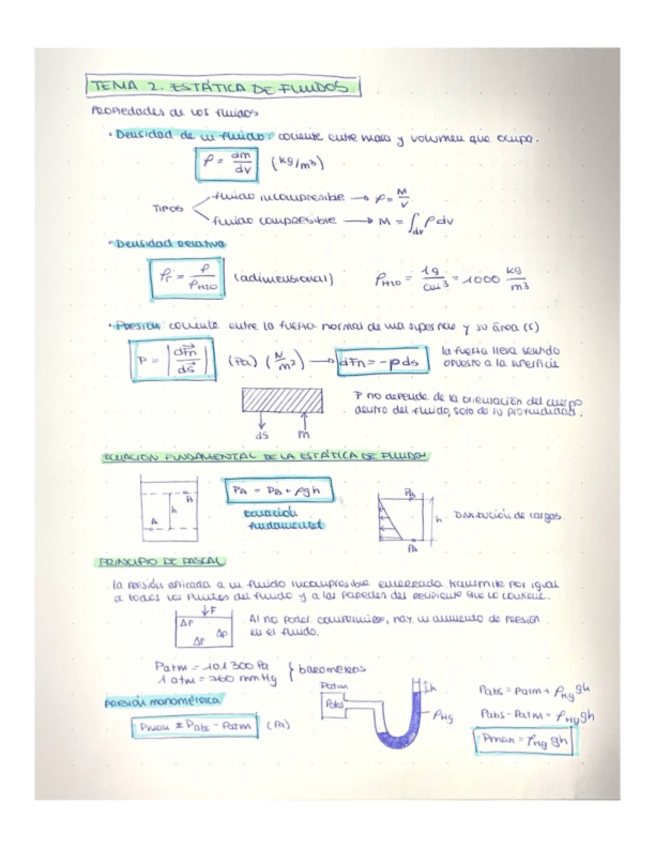 TEMA 2. ESTÁTICA DE FLUIDOS
Propiedades de los fluidos
· Densidad de un fluido: cociente entre masa y volumen que ocupa.
ρ = dm/dv (kg/m³)
TIPOS
fluido incompresible → ρ = M/V
fluido compresible → M = ∫dv ρ dv
· Densidad relativa
ρr = ρ/ρH2O (adimensional) ρH2O = 1g/cm³ = 1000 kg/m³
· Presión: cociente entre la fuerza normal de una superficie y su área (s)
P = |dFn/ds| (Pa) (N/m²) → dFn = -pds
la fuerza lleva sentido
opuesto a la superficie
ds Fn
P no depende de la orientación del cuerpo
dentro del fluido, solo de su profundidad.
ECUACIÓN FUNDAMENTAL DE LA ESTÁTICA DE FLUIDOS
B
A
h
PA = PB + ρgh
ecuación
fundamental
PB
h
PA
Distribución de cargas
PRINCIPIO DE PASCAL
la presión aplicada a un fluido incompresible encerrado transmite por igual
a todos los puntos del fluido y a las paredes del recipiente que lo contiene.
F
ΔP
ΔP
ΔP
Al no poder comprimirse, hay un aumento de presión
en el fluido.
Patm = 101 300 Pa
1 atm = 760 mmHg
barómetros
Presión manométrica
Pman = Pabs - Patm (Pa)
Patm
Pabs
h
ρHg
Pabs = Patm + ρHg gh
Pabs - Patm = ρHg gh
Pman = ρHg gh